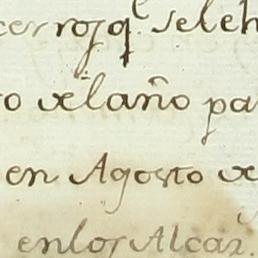 cerrojo q.e se le h
o del año pa
en Agosto de
en los Alcaz.